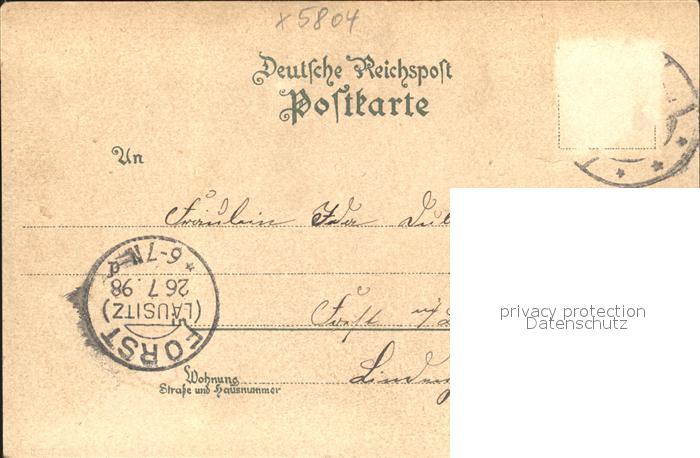 x 5804
Deutsche Reichspost
Postkarte
An
Fräulein Ida
6-7 N
26 7 98
(LAUSITZ)
FORST
Forst
Wohnung
Straße und Hausnummer
privacy protection
Datenschutz